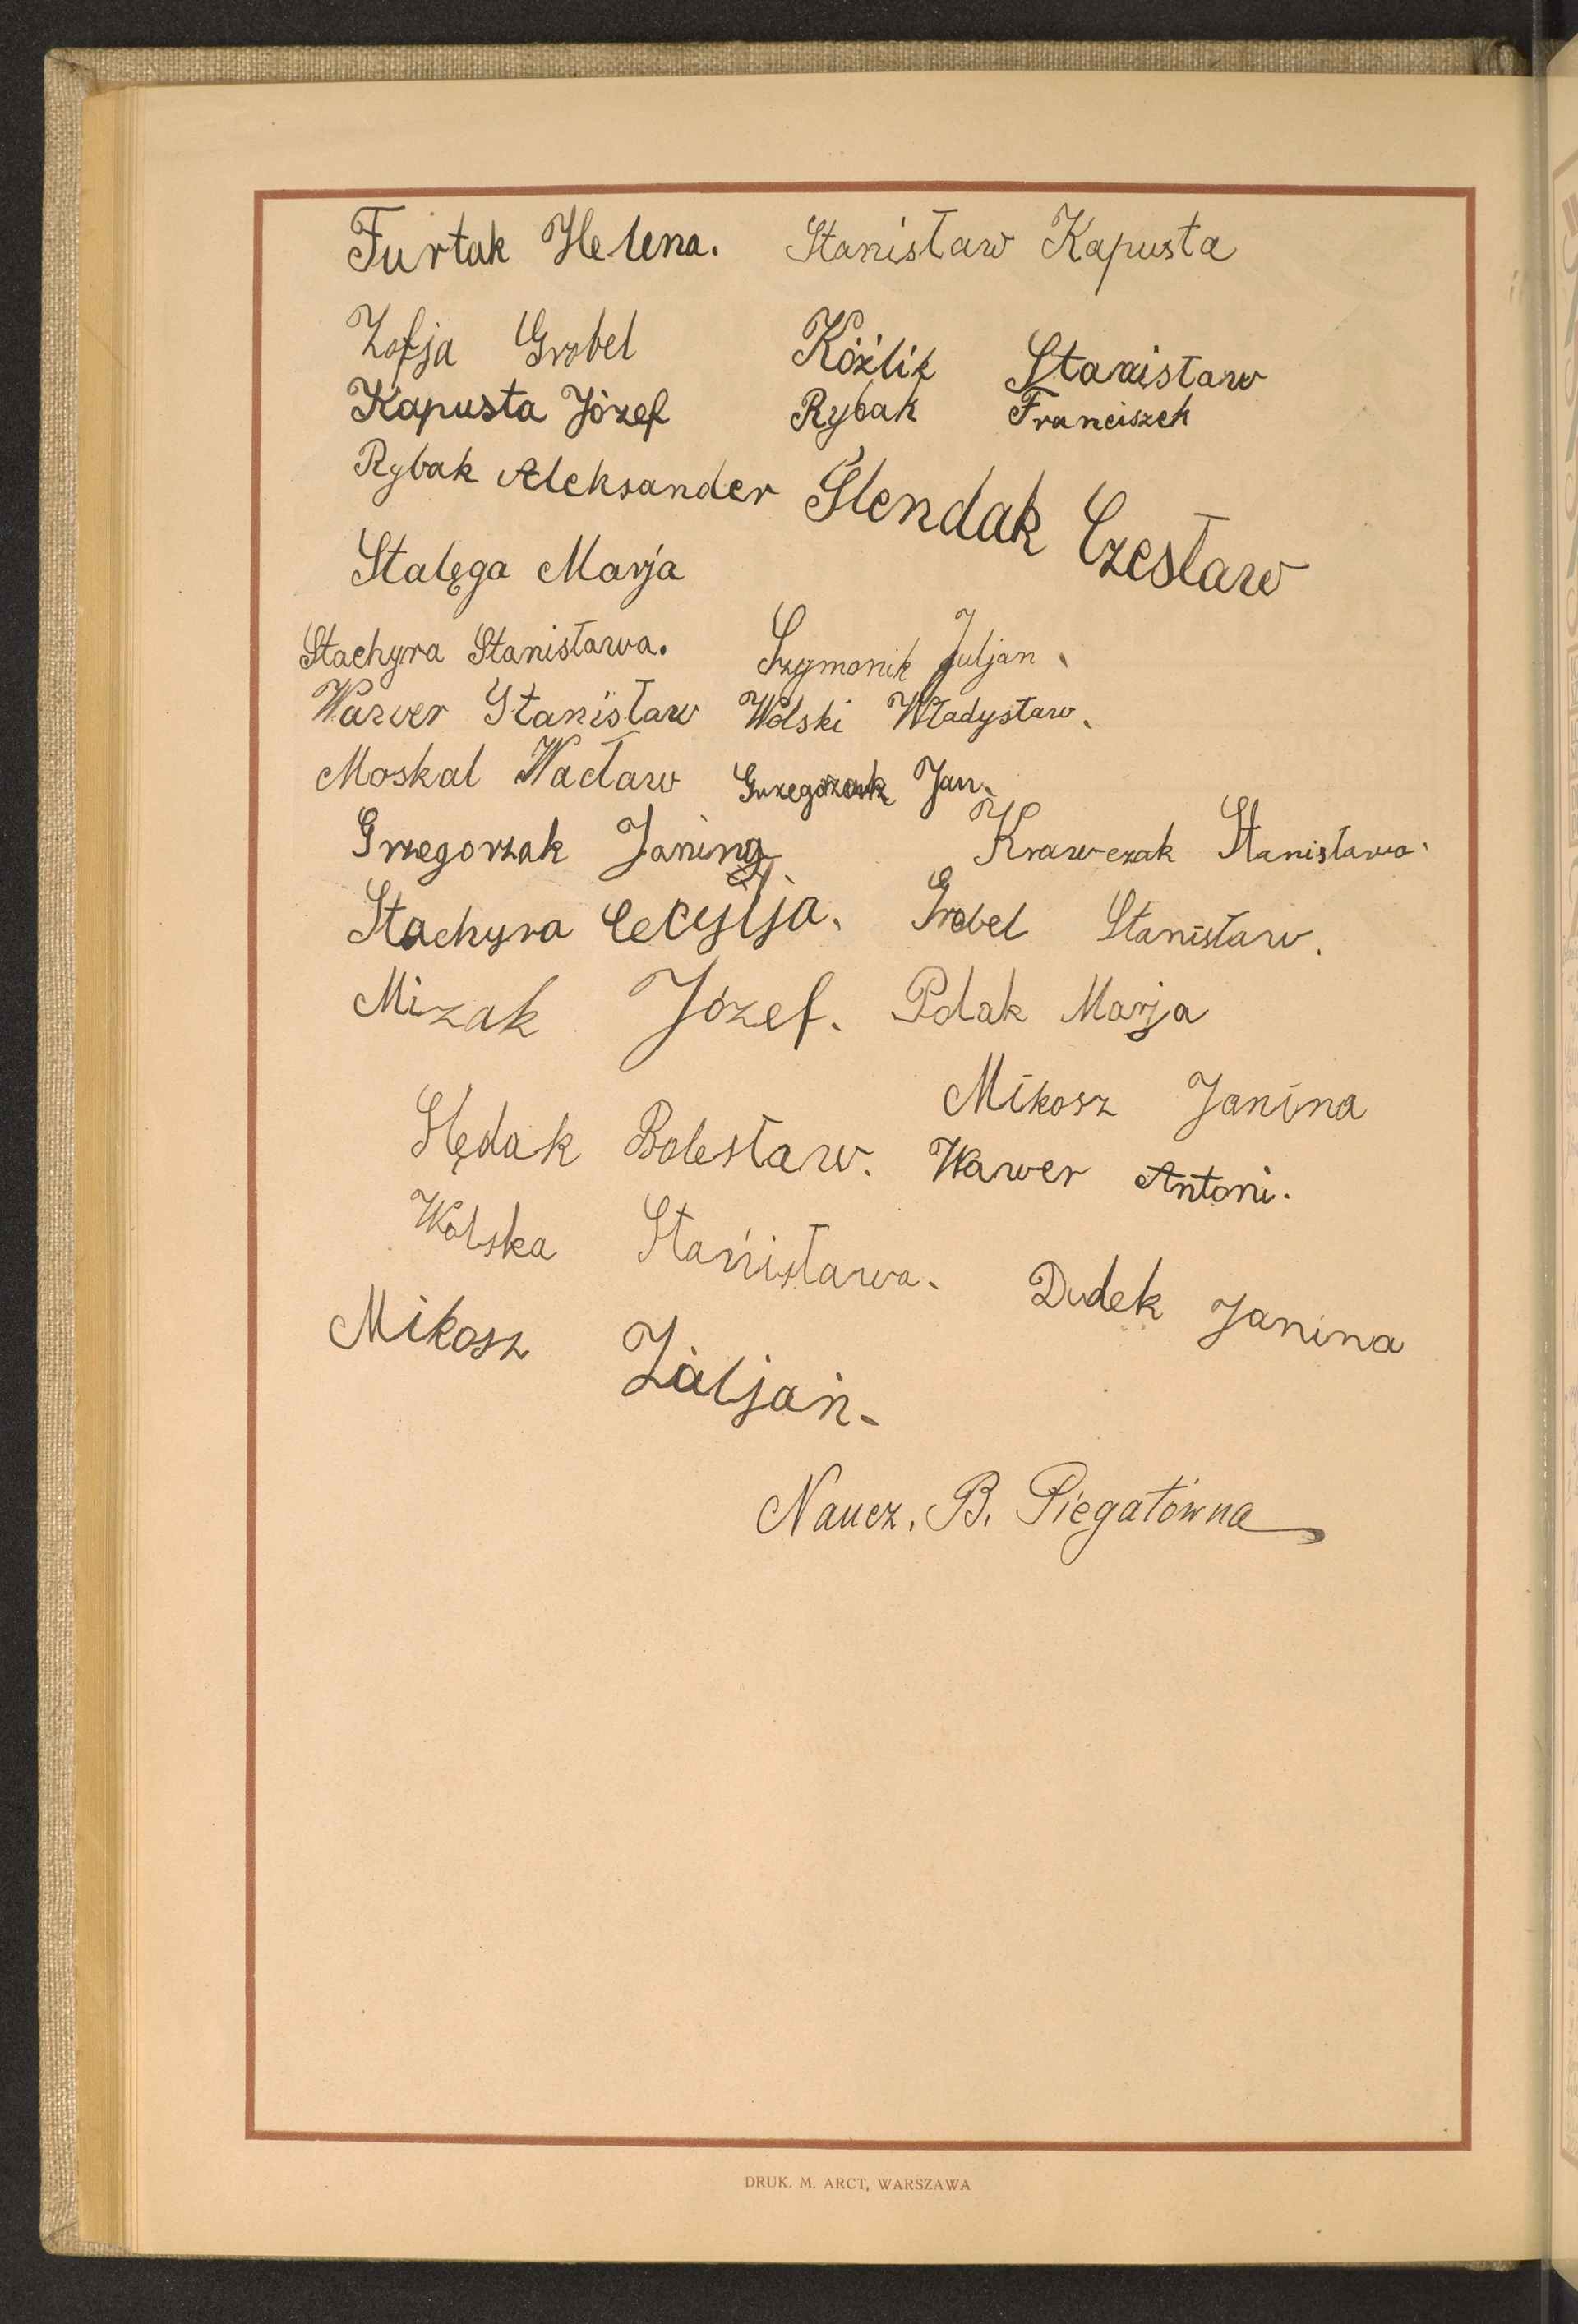 Furtak Helena. Stanisław Kapusta
Zofja Grobel Kóźlik Stanisław
Kapusta Józef Rybak Franciszek
Rybak Aleksander Ślendak Czesław
Stalęga Marja
Stachyra Stanisława. Szymonik Juljan.
Wawer Stanisław Wolski Władysław.
Moskal Wacław Grzegorzak Jan.
Grzegorzak Janina Krawczak Stanisława.
Stachyra Cecylja. Grobel Stanisław.
Mizak Józef. Polak Marja
Mikosz Janina
Slędak Bolesław. Wawer Antoni.
Wolska Stanisława. Dudek Janina
Mikosz
Naucz. B. Piegatówna
DRUK. M. ARCT, WARSZAWA